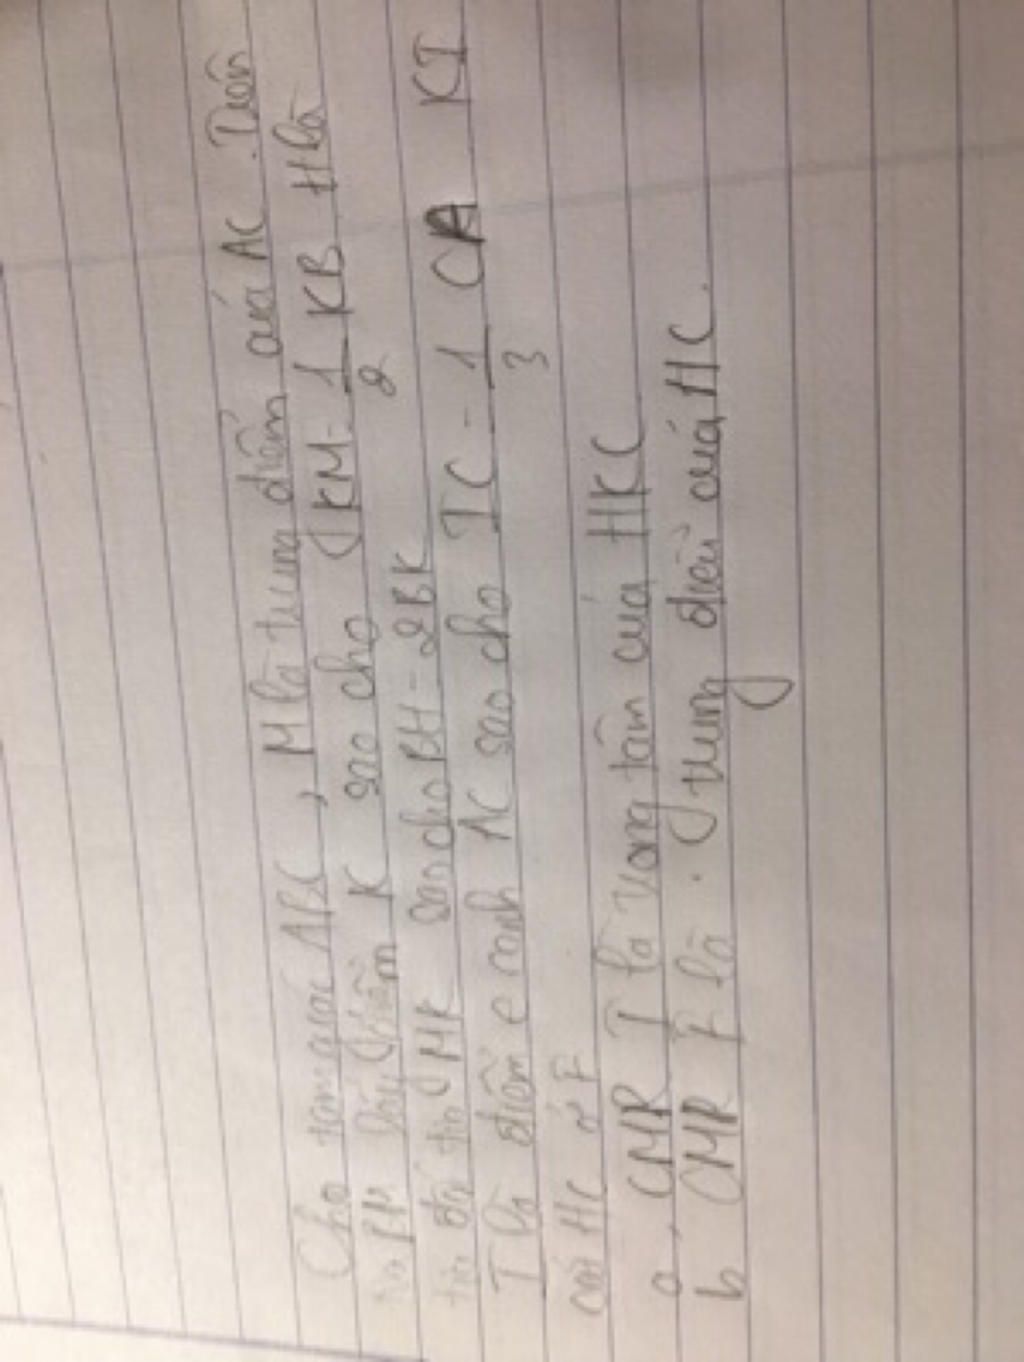 Cho tam giác ABC, M là trung điểm của AC. Trên
tia BM lấy điểm K sao cho KM = 1/2 KB. H là
tia đối tia MK sao cho BH = 2BK
I là điểm e cạnh AC sao cho IC = 1/3 CA KI
cắt HC ở F
a, CMR I là trọng tâm của HKC
b CMR F là . trung điểm của HC.